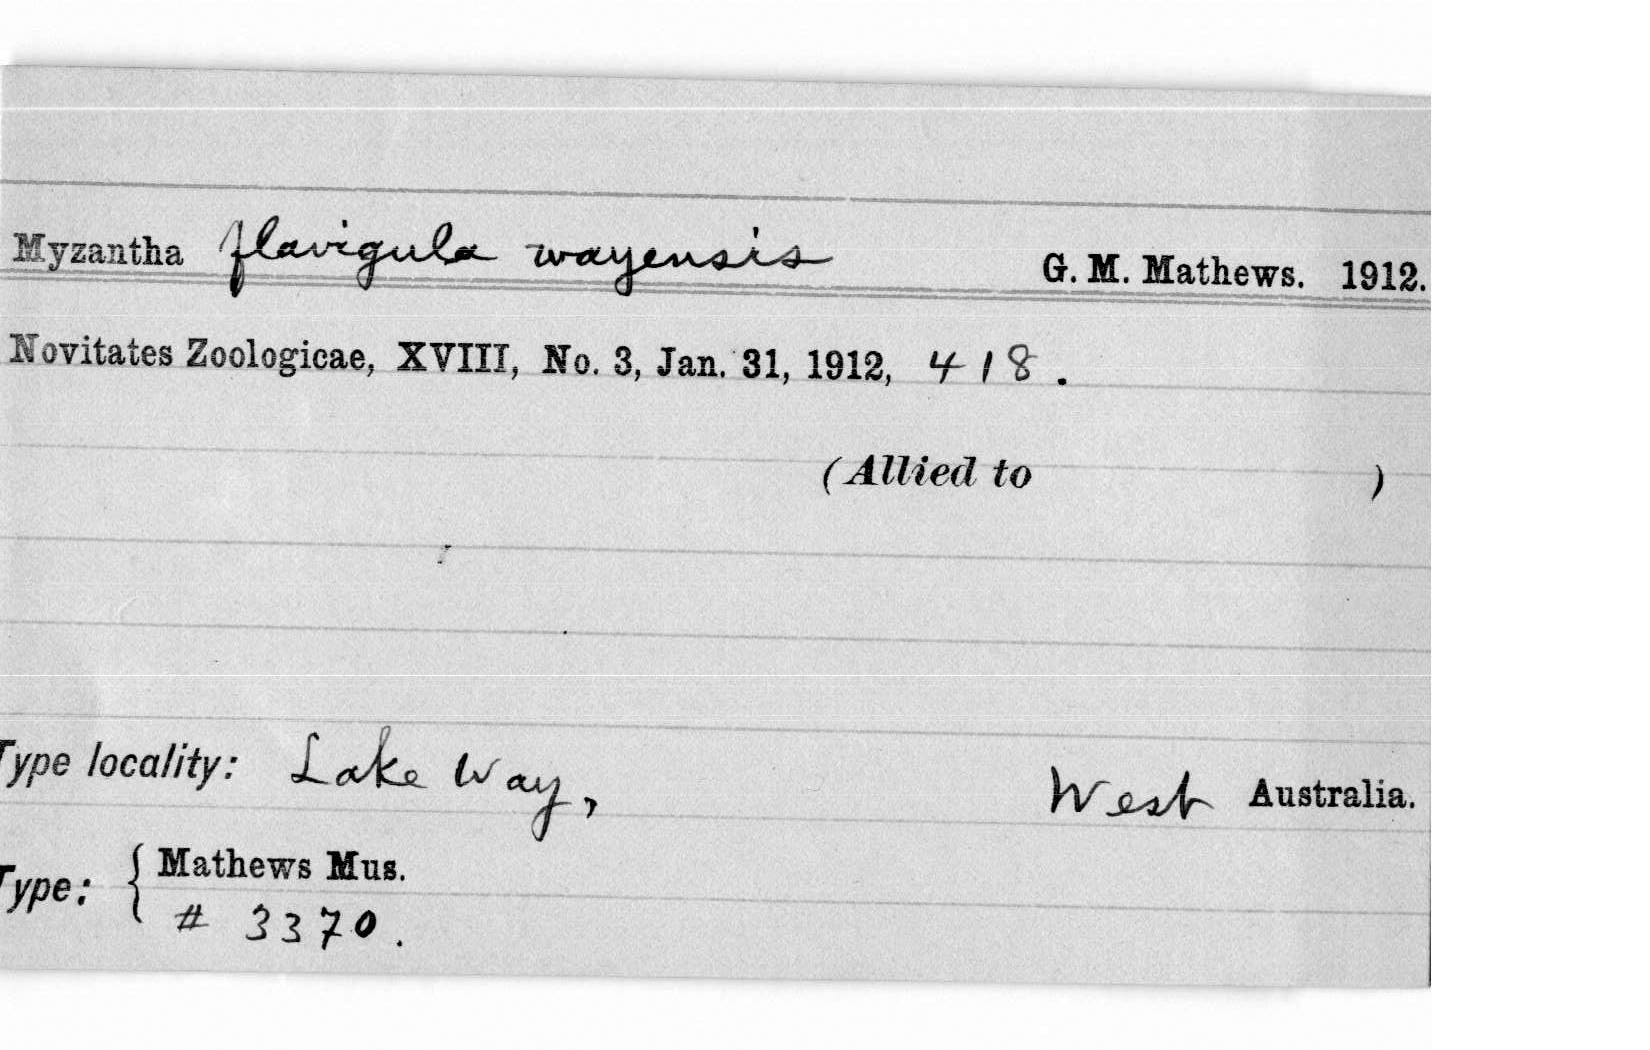 Myzantha flavigula wayensis G. M. Mathews. 1912.
Novitates Zoologicae, XVIII, No. 3, Jan. 31, 1912, 418.
(Allied to )
Type locality: Lake Way, West Australia.
Type: { Mathews Mus.
# 3370.